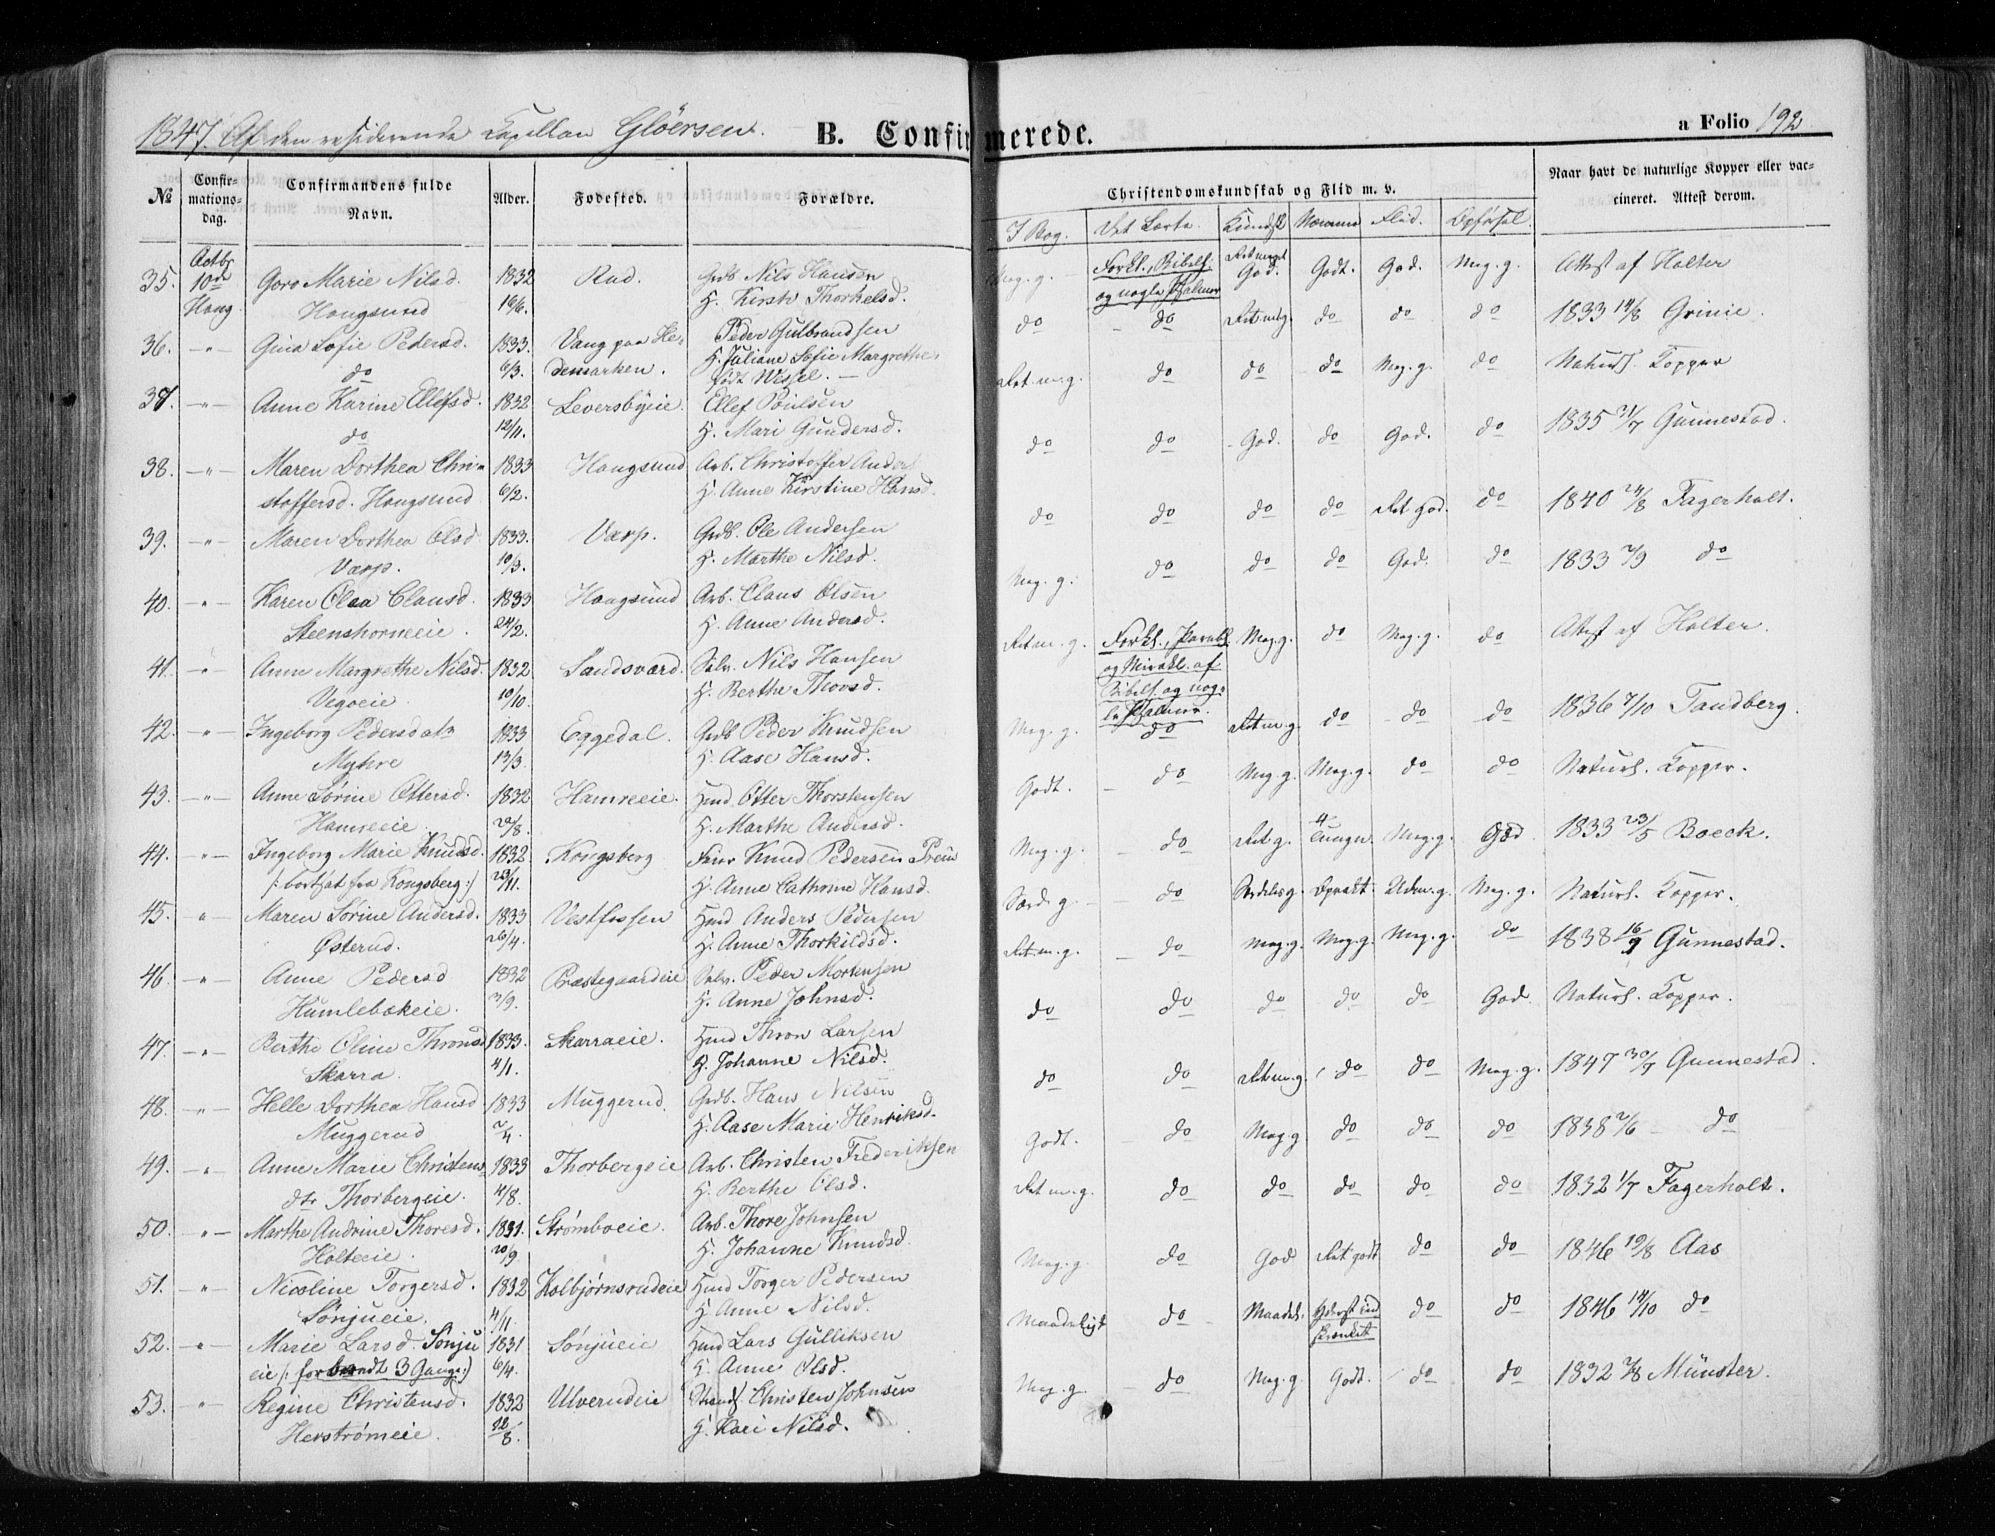 1847. Af den residerende Capellan Gløersen. B. Confirmerede. a Folio 192
№ Confirmationsdag. Confirmandens fulde Navn. Alder. Fødested. Forældre. Christendomskundskab og Flid m. v. Naar havt de naturlige Kopper eller vaccineret. Attest derom.
I Bog. Det Lærte. Kundsk. Nemme Flid. Opførsel.
35. Octbr 10de Haug Goro Marie Nilsd. 1832 Rud. Grdb Nils Hansen Meg. g. Forkl., Bibelh. Ret meget God. Godt. God. Meg. g. Attest af Holter
Hougsund 16/6. H. Kirsti Thorkelsd. og nogle Psalmer
36. -"- Gina Sofie Pedersd. 1833. Vang paa He- Peder Gulbrandsen do do Ret meg. do do do 1833 14/8 Grinie.
do 6/3. demarken. H. Juliane Sofie Margrethe
født Wessel. —
37. -"- Anne Karine Ellefsd. 1832 Leversbyeie. Ellef Poulsen Ret m. g. do do do Meg. g. do Naturl. Kopper
do 12/11. H. Mari Gundersd.
38. -"- Maren Dorthea Chri- 1833 Hougsund Arb. Christoffer Anders do do God. do God. do 1835 31/7 Gunnestad.
stoffersd. Hougsund 6/2. H. Anne Kirstine Hansd.
39. -"- Maren Dorthea Olsd 1833. Varp. Grdb. Ole Andersen do do do do Ret God. do 1840 24/8 Fagerholt.
Varp. 10/3. H. Marthe Nilsd.
40. -"- Karen Olea Clausd. 1833 Hougsund Arb. Claus Olsen Meg. g. do do do God. do 1833 7/9 do
Steenshorneeie. 24/2. H. Anne Andersd.
41. -"- Anne Margrethe Nilsd. 1832 Sandsværd. Selv. Nils Hansen Ret m. g. Forkl., Parabl. Meg. g. do Meg. g. do Attest af Holter.
Vegoeie. 10/10. H. Berthe Thovsd. og Mirakl. af
Bibelh. og nog-
le Psalmer.
42. -"- Ingeborg Pedersdatr 1833 Eggedal. Grdb Peder Knudsen Meg. g. do Ret m. g. do do do 1836 7/10 Tandberg.
Myhre 13/3. H. Aase Hansd.
43. -"- Anne Sørine Ottersd. 1832 Hamreeie. Hmd Otter Thorstensen Godt. do Meg. g. Meg. g. do do Naturl. Kopper.
Hamreeie. 20/8. H. Marthe Andersd.
44. -"- Ingeborg Marie Knudsd. 1832 Kongsberg Knud Pedersen Meg. g. do Ret g. Meg. g. God 1833 23/5 Boeck.
/: bortsat fra Kongsberg :/ 23/11. H. Anne Cathrine Hansd.
45. " Maren Sørine Andersd. 1833 Vestfossen Hmd Anders Pedersen Særd. g. do Særdeles g. Meg. g. Naturl. Kopper.
Østerud. 26/4. H. Anne Thorkildsd.
46. -"- Anne Pedersd 1832 Præstegaardeie Selv. Peder Mortensen Ret m. g. do Meg. g. Meg. g. Meg. g. do 1838 16/9 Gunnestad.
Humlebækeie. 3/9. H. Anne Johnsd.
47. -"- Berthe Oline Thronsd 1833. Skarraeie. Hmd Thron Larsen do do do do do God. Naturl. Kopper.
Skarra. 4/1. H. Johanne Nilsd.
48. -"- Helle Dorthea Hansd. 1833 Muggerud. Grdb. Hans Nilsen do do Ret m. g. do do Meg. g. 1847 30/7 Gunnestad
Muggerud 2/4. H. Aase Marie Henriksd.
49. -"- Anne Marie Christens- 1833 Thorbergeie Arb. Christen Frederiksen Godt. do Meg. g do do do 1838 2/6 do
dtr Thorbergeie. 4/8. H. Berthe Olsd.
50. -"- Marthe Andrine Thoresd. 1831. Strømboeie. Arb. Thore Johnsen Ret m. g. do do do do do 1832 1/7 Fagerholt.
Holteeie. 20/9 H. Johanne Knudsd.
51. -"- Nicoline Torgersd. 1832 Kolbjørnsrudeie Hmd Torger Pedersen Meg. g. do God Ret godt do do 1846 19/8 Aas
Sønjueie. 4/11. H. Anne Nilsd.
52. -"- Marie Larsd. Sønju 1831 Sønjueie Hmd Lars Gulliksen Maadeligt do Maadel. Yderst ind- do do 1846 14/10 do
eie /: forbandt 3 Gange :/ 6/4. H. Anne Olsd. skrænket
53. -"- Regine Christensd. 1832 Ulverudeie Christen Johnsen Meg. g. do Meg. g Godt. do do 1832 7/8 Münster.
Herstrømeie. 12/8. H. Kari Nilsd.